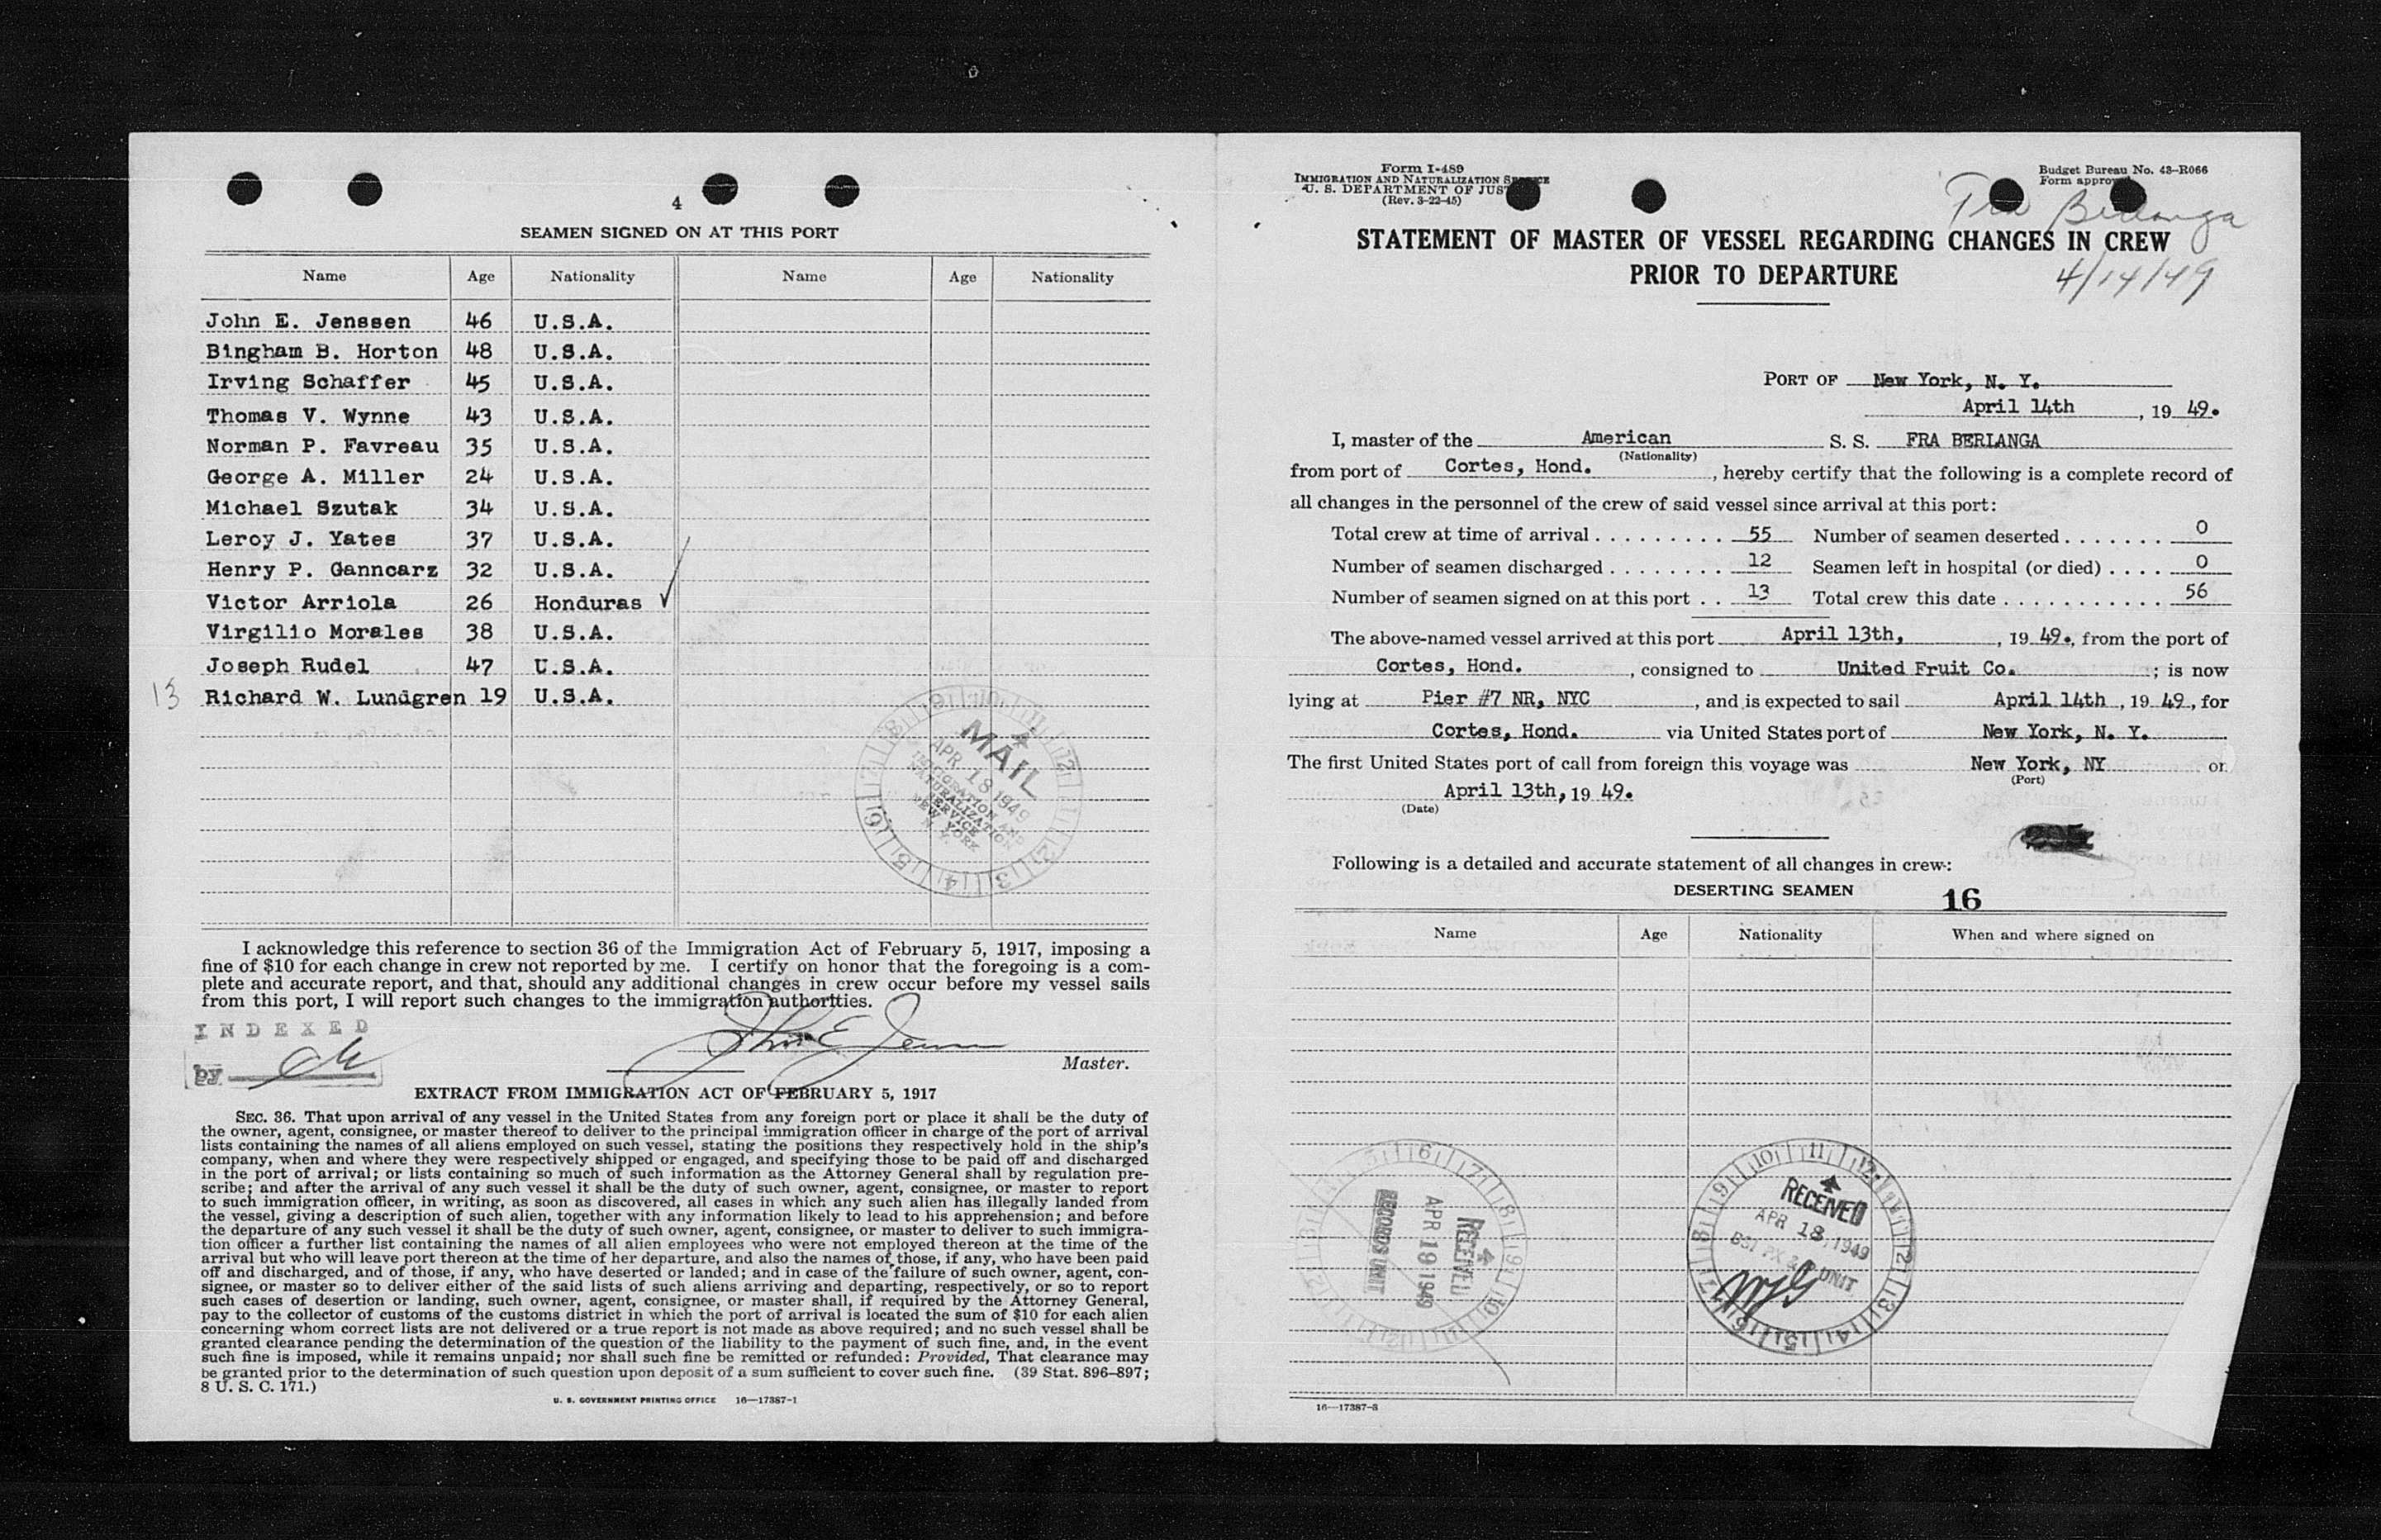 4
SEAMEN SIGNED ON AT THIS PORT
Name Age Nationality Name Age Nationality
John E. Jenssen 46 U.S.A.
Bingham B. Horton 48 U.S.A.
Irving Schaffer 45 U.S.A.
Thomas V. Wynne 43 U.S.A.
Norman P. Favreau 35 U.S.A.
George A. Miller 24 U.S.A.
Michael Szutak 34 U.S.A.
Leroy J. Yates 37 U.S.A.
Henry P. Ganncarz 32 U.S.A.
Victor Arriola 26 Honduras ✓
Virgilio Morales 38 U.S.A.
Joseph Rudel 47 U.S.A.
13 Richard W. Lundgren 19 U.S.A.
MAIL
APR 18 1949
IMMIGRATION AND
NATURALIZATION
SERVICE
NEW YORK
N. Y.
I acknowledge this reference to section 36 of the Immigration Act of February 5, 1917, imposing a
fine of $10 for each change in crew not reported by me. I certify on honor that the foregoing is a com-
plete and accurate report, and that, should any additional changes in crew occur before my vessel sails
from this port, I will report such changes to the immigration authorities.
INDEXED
by
John E Jenssen
Master.
EXTRACT FROM IMMIGRATION ACT OF FEBRUARY 5, 1917
SEC. 36. That upon arrival of any vessel in the United States from any foreign port or place it shall be the duty of
the owner, agent, consignee, or master thereof to deliver to the principal immigration officer in charge of the port of arrival
lists containing the names of all aliens employed on such vessel, stating the positions they respectively hold in the ship's
company, when and where they were respectively shipped or engaged, and specifying those to be paid off and discharged
in the port of arrival; or lists containing so much of such information as the Attorney General shall by regulation pre-
scribe; and after the arrival of any such vessel it shall be the duty of such owner, agent, consignee, or master to report
to such immigration officer, in writing, as soon as discovered, all cases in which any such alien has illegally landed from
the vessel, giving a description of such alien, together with any information likely to lead to his apprehension; and before
the departure of any such vessel it shall be the duty of such owner, agent, consignee, or master to deliver to such immigra-
tion officer a further list containing the names of all alien employees who were not employed thereon at the time of the
arrival but who will leave port thereon at the time of her departure, and also the names of those, if any, who have been paid
off and discharged, and of those, if any, who have deserted or landed; and in case of the failure of such owner, agent, con-
signee, or master so to deliver either of the said lists of such aliens arriving and departing, respectively, or so to report
such cases of desertion or landing, such owner, agent, consignee, or master shall, if required by the Attorney General,
pay to the collector of customs of the customs district in which the port of arrival is located the sum of $10 for each alien
concerning whom correct lists are not delivered or a true report is not made as above required; and no such vessel shall be
granted clearance pending the determination of the question of the liability to the payment of such fine, and, in the event
such fine is imposed, while it remains unpaid; nor shall such fine be remitted or refunded: Provided, That clearance may
be granted prior to the determination of such question upon deposit of a sum sufficient to cover such fine. (39 Stat. 896-897;
8 U. S. C. 171.)
U. S. GOVERNMENT PRINTING OFFICE 16—17387-1
Form I-489
IMMIGRATION AND NATURALIZATION SERVICE
U. S. DEPARTMENT OF JUS
(Rev. 3-22-45)
Budget Bureau No. 43-R066
Form approv
Fra Berlanga
4/14/49
STATEMENT OF MASTER OF VESSEL REGARDING CHANGES IN CREW
PRIOR TO DEPARTURE
PORT OF New York, N. Y.
April 14th, 19 49.
I, master of the American S. S. FRA BERLANGA
(Nationality)
from port of Cortes, Hond., hereby certify that the following is a complete record of
all changes in the personnel of the crew of said vessel since arrival at this port:
Total crew at time of arrival . . . . . . . . . 55 Number of seamen deserted . . . . . . . 0
Number of seamen discharged . . . . . . . . 12 Seamen left in hospital (or died) . . . . 0
Number of seamen signed on at this port . . 13 Total crew this date . . . . . . . . . . . 56
The above-named vessel arrived at this port April 13th, , 19 49., from the port of
Cortes, Hond. , consigned to United Fruit Co. ; is now
lying at Pier #7 NR, NYC , and is expected to sail April 14th , 19 49, for
Cortes, Hond. via United States port of New York, N. Y.
The first United States port of call from foreign this voyage was New York, NY on
(Port)
April 13th, 19 49.
(Date)
Following is a detailed and accurate statement of all changes in crew:
DESERTING SEAMEN 16
Name Age Nationality When and where signed on
RECEIVED
APR 19 1949
RECORDS UNIT
RECEIVED
APR 18 1949
UNIT
16—17387-3